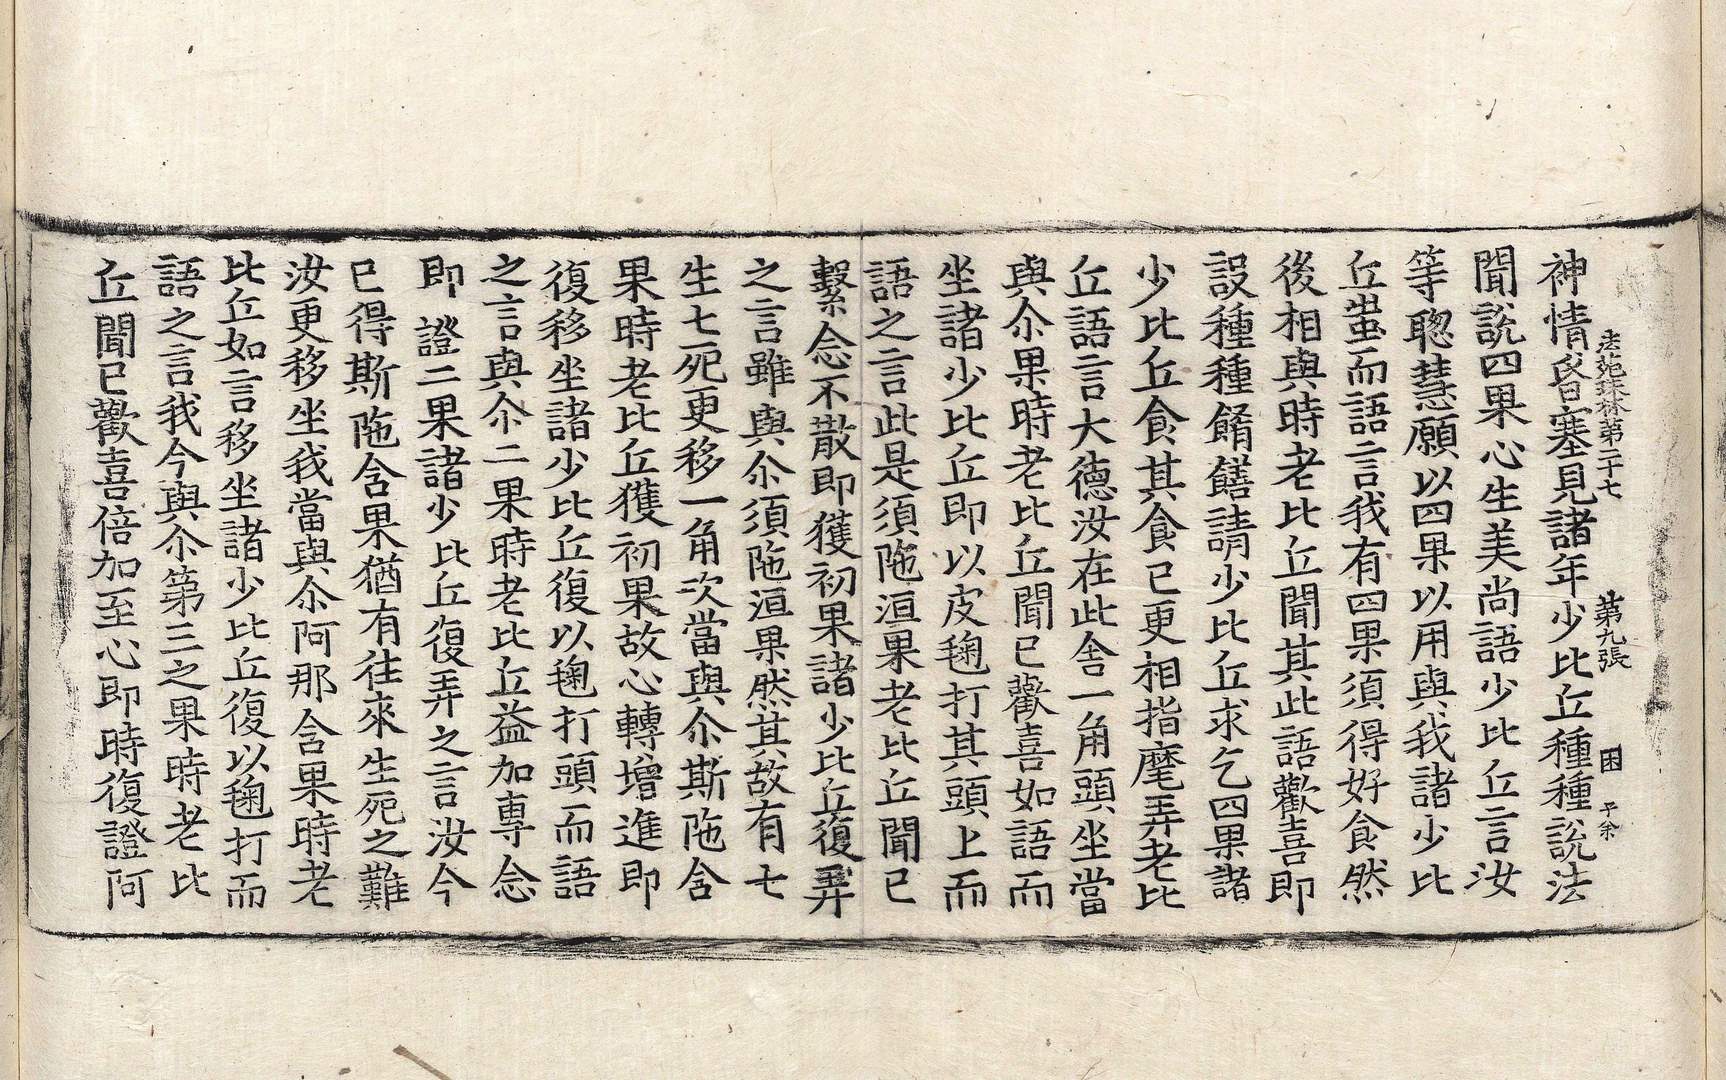 法苑珠林第二十七 第九張 困 子余
神情昬塞見諸年少比丘種種說法
聞說四果心生羙尚語少比丘言汝
等聦慧願以四果以用與我諸少比
丘蚩而語言我有四果須得好食然
後相與時老比丘聞其此語歡喜即
設種種餚饍請少比丘求乞四果諸
少比丘食其食已更相指麾弄老比
丘語言大德汝在此舍一角頭坐當
與尒果時老比丘聞已歡喜如語而
坐諸少比丘即以皮毱打其頭上而
語之言此是須陁洹果老比丘聞已
繫念不散即獲初果諸少比丘復弄
之言雖與尒須陁洹果然其故有七
生七死更移一角次當與尒斯陁含
果時老比丘獲初果故心轉增進即
復移坐諸少比丘復以毱打頭而語
之言與尒二果時老比丘益加專念
即證二果諸少比丘復弄之言汝今
已得斯陁含果猶有往來生死之難
汝更移坐我當與尒阿那含果時老
比丘如言移坐諸少比丘復以毱打而
語之言我今與尒第三之果時老比
丘聞已歡喜倍加至心即時復證阿